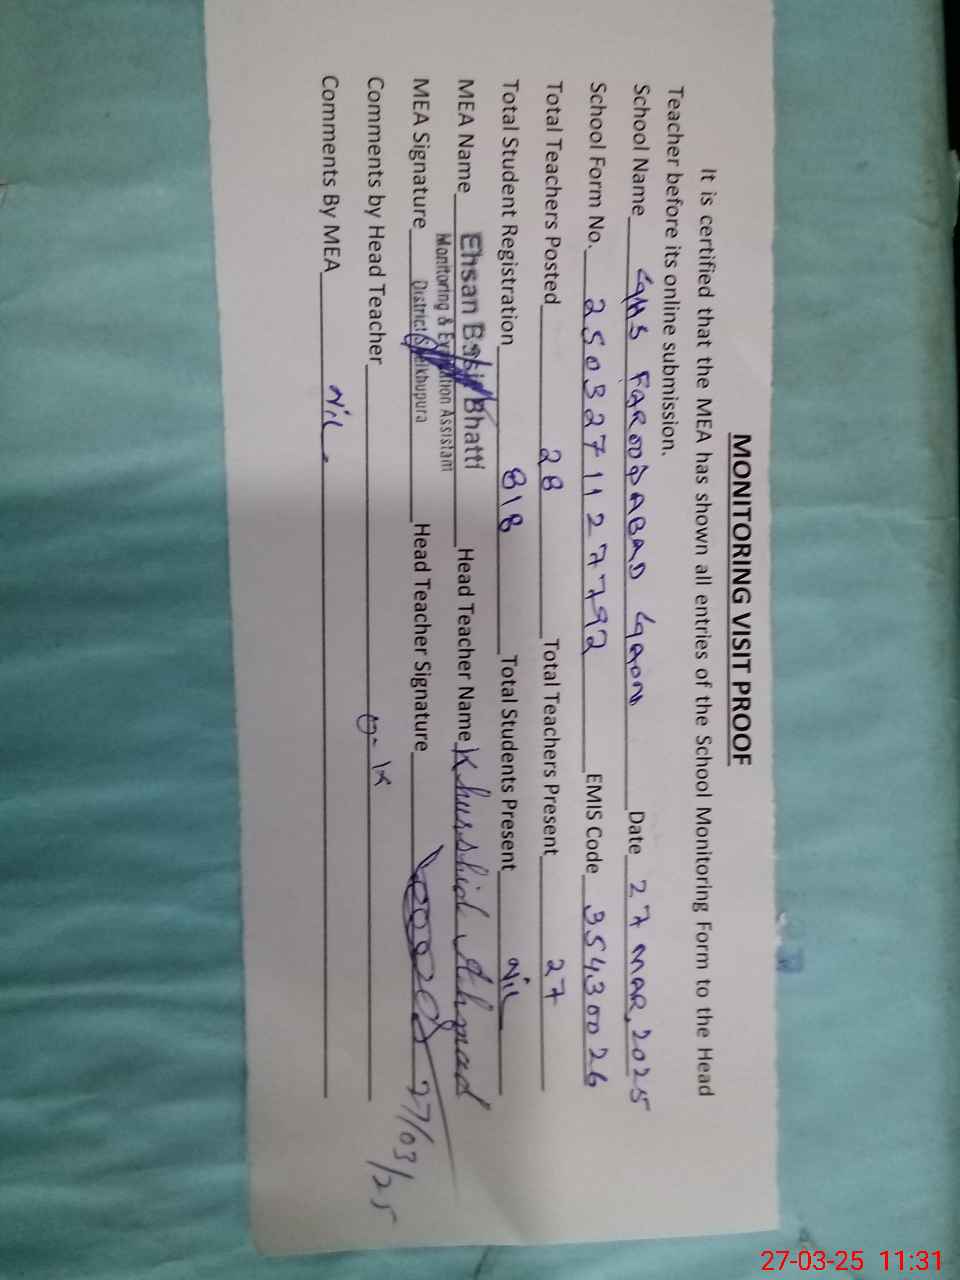 MONITORING VISIT PROOF
It is certified that the MEA has shown all entries of the School Monitoring Form to the Head
Teacher before its online submission.
School Name GMS FAROOQABAD GAON Date 27 MAR, 2025
School Form No. 2503271127792 EMIS Code 35430026
Total Teachers Posted 28 Total Teachers Present 27
Total Student Registration 818 Total Students Present Nil
MEA Name Ehsan Basir Bhatti Head Teacher Name Khurshid Ahmad
Monitoring & Evaluation Assistant
MEA Signature District Sheikhupura Head Teacher Signature 27/03/25
Comments by Head Teacher O-K
Comments By MEA Nil.
27-03-25 11:31